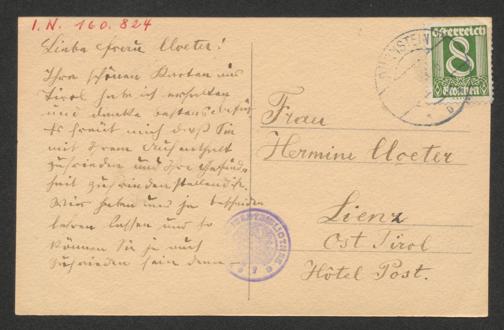 I.N. 160.824
Liebe Frau Cloeter!
Ihre schönen Karten aus
Tirol habe ich erhalten
und danke bestens dafür
Es freut mich daß Sie
mit Ihrem Aufenthalt
zufrieden und Ihre Gesund-
heit zufriedenstellend ist.
Wir haben uns ja bescheiden
lassen und so
können Sie ja auch
zufrieden sein denn —
Österreich
8
Kronen
Frau
Hermine Cloeter
Lienz
Ost Tirol
Hôtel Post.